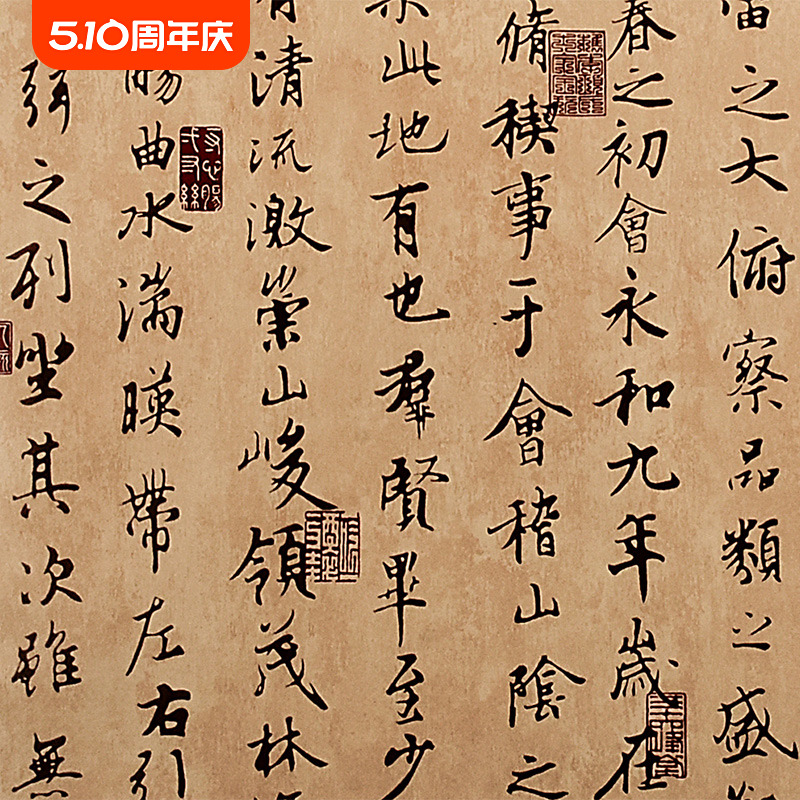 5.10周年庆
之大俯察品類之盛
春之初會永和九年歲在
脩稧事于會稽山陰之
此地有也羣賢畢至少
有清流激崇山峻領茂林
曲水湍暎帶左右引
之列坐其次雖無